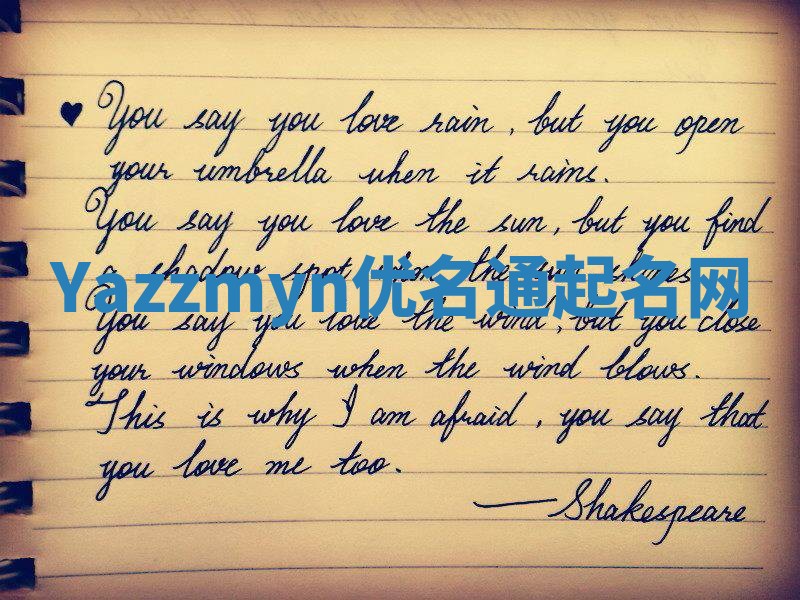 ♥ You say you love rain, but you open
your umbrella when it rains.
You say you love the sun, but you find
a shadow spot when the sun shines.
Yazzmyn优名通起名网
You say you love the wind, but you close
your windows when the wind blows.
This is why I am afraid, you say that
you love me too.
—Shakespeare